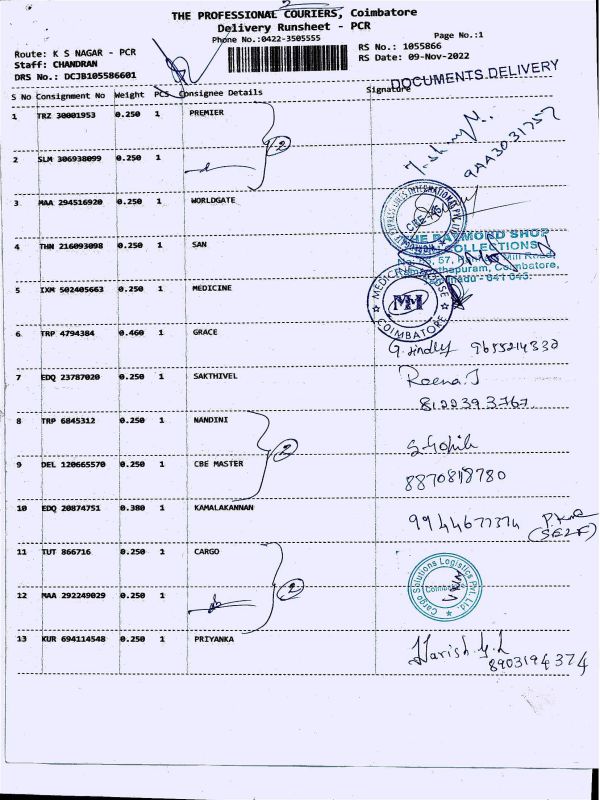 THE PROFESSIONAL COURIERS, Coimbatore
Delivery Runsheet - PCR
Phone No.:0422-3505555
Page No.:1
Route: K S NAGAR - PCR
RS No.: 1055866
Staff: CHANDRAN
RS Date: 09-Nov-2022
DRS No.: DCJB105586601
DOCUMENTS DELIVERY
S No Consignment No Weight PCS Consignee Details Signature
1 TRZ 30001953 0.250 1 PREMIER
2 SLM 306938099 0.250 1
2
3 MAA 294516920 0.250 1 WORLDGATE
CBE
4 THN 216093098 0.250 1 SAN
THE RAYMOND SHOP
COLLECTIONS
57, Mill Road,
Ramanathapuram, Coimbatore,
641 045.
5 IXM 502405663 0.250 1 MEDICINE
MM
COIMBATORE
6 TRP 4794384 0.460 1 GRACE
9655214330
7 EDQ 23787020 0.250 1 SAKTHIVEL
Reena.J
8122393767
8 TRP 6845312 0.250 1 NANDINI
2
9 DEL 120665570 0.250 1 CBE MASTER
8870818780
10 EDQ 20874751 0.380 1 KAMALAKANNAN
9944677374
(SELF)
11 TUT 866716 0.250 1 CARGO
Cargo Solutions Logistics Pvt. Ltd.
12 MAA 292249029 0.250 1
2
13 KUR 694114548 0.250 1 PRIYANKA
Harish.
8903194374